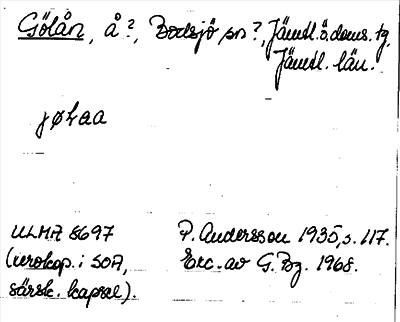 Gölån, å?, Bodsjö sn?, Jämtl. ö. doms. tg,
Jämtl. län.
jøLaa
ULMA 8697
(xerokop. i SOA,
särsk. kapsel).
P. Andersson 1935, s. 117.
Exc. av G. Bg. 1968.